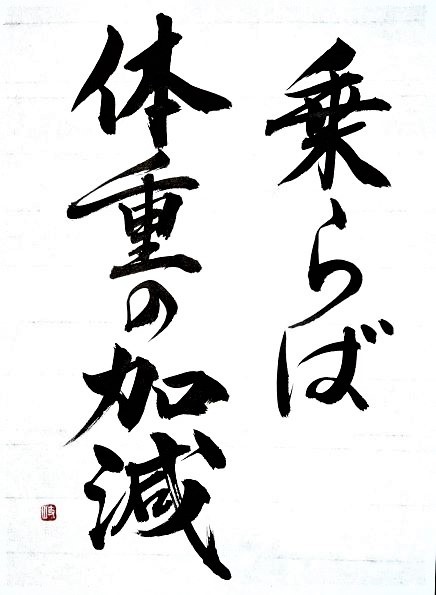 乗らば
体重の加減